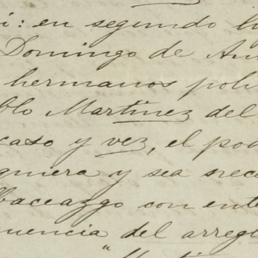 i: en segundo lu
Domingo de An
hermanos poli
blo Martinez del
caso y vez, el po
quiera y sea nece
baceazgo con ent
uencia del arreg